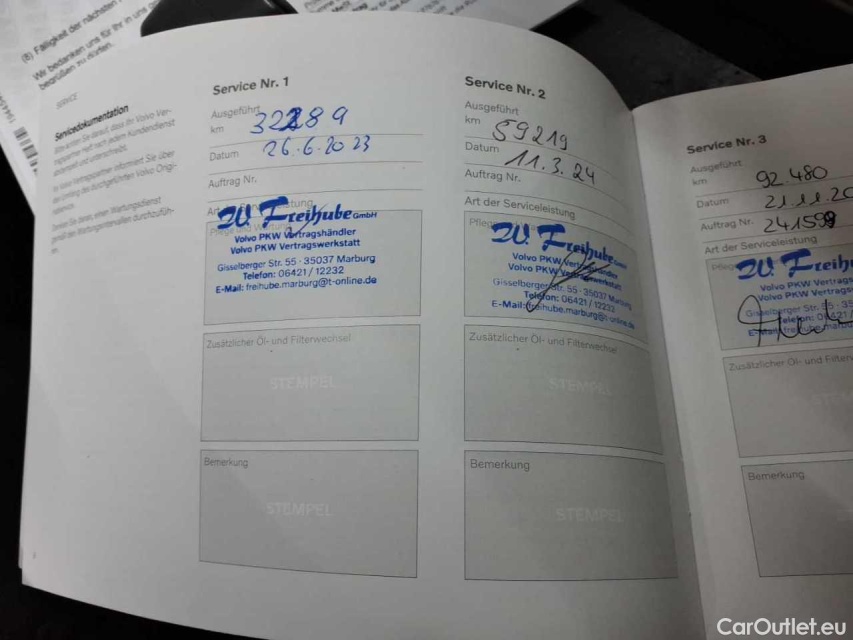 (8) Fälligkeit der nächsten
Wir bedanken uns für Ihr in uns
begrüßen zu dürfen.
SERVICE
Servicedokumentation
Service Nr. 1
Ausgeführt
km 32289
Datum 26.6.2023
Auftrag Nr.
Freihube GmbH
Volvo PKW Vertragshändler
Volvo PKW Vertragswerkstatt
Gisselberger Str. 55 · 35037 Marburg
Telefon: 06421 / 12232
E-Mail: freihube.marburg@t-online.de
Zusätzlicher Öl- und Filterwechsel
STEMPEL
Bemerkung
STEMPEL
Service Nr. 2
Ausgeführt
km 59219
Datum 11.3.24
Auftrag Nr.
Art der Serviceleistung
Freihube GmbH
Volvo PKW Vertragshändler
Volvo PKW Vertragswerkstatt
Gisselberger Str. 55 · 35037 Marburg
Telefon: 06421 / 12232
E-Mail: freihube.marburg@t-online.de
Zusätzlicher Öl- und Filterwechsel
STEMPEL
Bemerkung
STEMPEL
Service Nr. 3
Ausgeführt
km 92 480
Datum 21.11.20
Auftrag Nr. 241599
Art der Serviceleistung
Freihu
Volvo PKW Vertrags
Volvo PKW Vertrags
Zusätzlicher Öl- und Filterw
Bemerkung
CarOutlet.eu